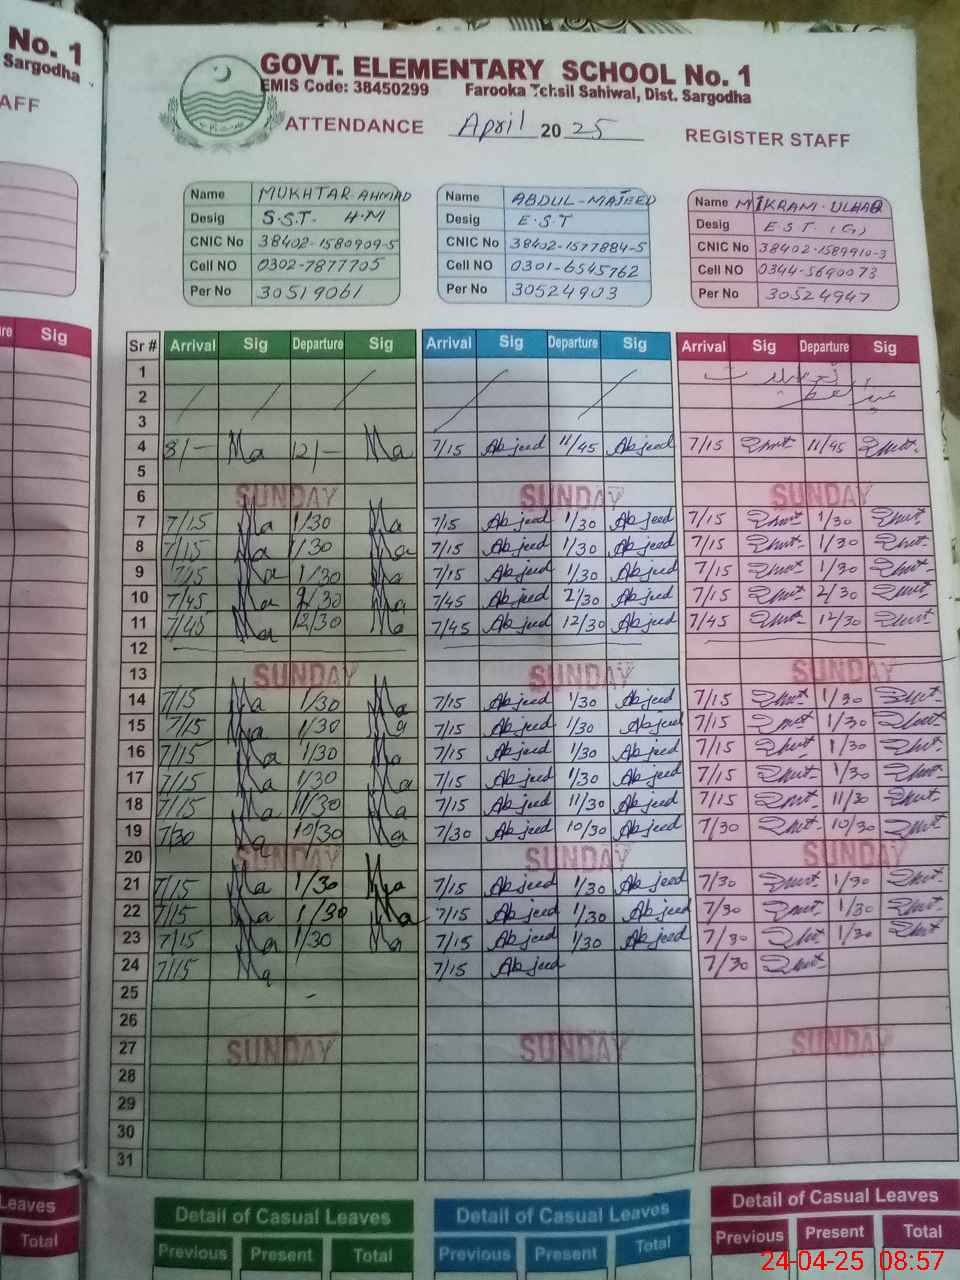 No. 1
Sargodha
AFF
GOVT. ELEMENTARY SCHOOL No. 1
EMIS Code: 38450299 Farooka Tehsil Sahiwal, Dist. Sargodha
ATTENDANCE April 2025 REGISTER STAFF
Name MUKHTAR AHMAD
Desig S.S.T. H.M
CNIC No 38402-1580909-5
Cell NO 0302-7877705
Per No 30519061
Name ABDUL-MAJEED
Desig E.S.T
CNIC No 38402-1577884-5
Cell NO 0301-6545762
Per No 30524903
Name M IKRAM-ULHAQ
Desig E.S.T. (G)
CNIC No 38402-1589910-3
Cell NO 0344-5690073
Per No 30524947
Sig
Sr # Arrival Sig Departure Sig Arrival Sig Departure Sig Arrival Sig Departure Sig
1
2
3
4 8/- Ma 12/- Ma 7/15 Abjeed 11/45 Abjeed 7/15 11/45
5
6 SUNDAY SUNDAY SUNDAY
7 7/15 Ma 1/30 Ma 7/15 Abjeed 1/30 Abjeed 7/15 1/30
8 7/15 Ma 1/30 Ma 7/15 Abjeed 1/30 Abjeed 7/15 1/30
9 7/15 Ma 1/30 Ma 7/15 Abjeed 1/30 Abjeed 7/15 1/30
10 7/45 Ma 2/30 Ma 7/45 Abjeed 2/30 Abjeed 7/15 2/30
11 7/45 Ma 12/30 Ma 7/45 Abjeed 12/30 Abjeed 7/45 12/30
12
13 SUNDAY SUNDAY SUNDAY
14 7/15 Ma 1/30 Ma 7/15 Abjeed 1/30 Abjeed 7/15 1/30
15 7/15 Ma 1/30 Ma 7/15 Abjeed 1/30 Abjeed 7/15 1/30
16 7/15 Ma 1/30 Ma 7/15 Abjeed 1/30 Abjeed 7/15 1/30
17 7/15 Ma 1/30 Ma 7/15 Abjeed 1/30 Abjeed 7/15 1/30
18 7/15 Ma 11/30 Ma 7/15 Abjeed 11/30 Abjeed 7/15 11/30
19 7/30 Ma 10/30 Ma 7/30 Abjeed 10/30 Abjeed 7/30 10/30
20 SUNDAY SUNDAY SUNDAY
21 7/15 Ma 1/30 Ma 7/15 Abjeed 1/30 Abjeed 7/30 1/30
22 7/15 Ma 1/30 Ma 7/15 Abjeed 1/30 Abjeed 7/30 1/30
23 7/15 Ma 1/30 Ma 7/15 Abjeed 1/30 Abjeed 7/30 1/30
24 7/15 Ma 7/15 Abjeed 7/30
25
26
27 SUNDAY SUNDAY SUNDAY
28
29
30
31
Leaves
Total
Detail of Casual Leaves Detail of Casual Leaves Detail of Casual Leaves
Previous Present Total Previous Present Total Previous Present Total
24-04-25 08:57